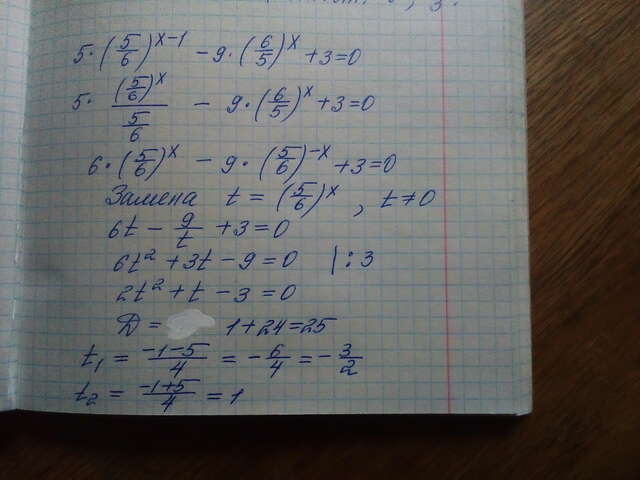 5·(5/6)^(x-1) - 9·(6/5)^x + 3 = 0
5·((5/6)^x)/(5/6) - 9·(6/5)^x + 3 = 0
6·(5/6)^x - 9·(5/6)^(-x) + 3 = 0
Замена t = (5/6)^x, t ≠ 0
6t - 9/t + 3 = 0
6t² + 3t - 9 = 0 |:3
2t² + t - 3 = 0
D = 1 + 24 = 25
t₁ = (-1-5)/4 = -6/4 = -3/2
t₂ = (-1+5)/4 = 1